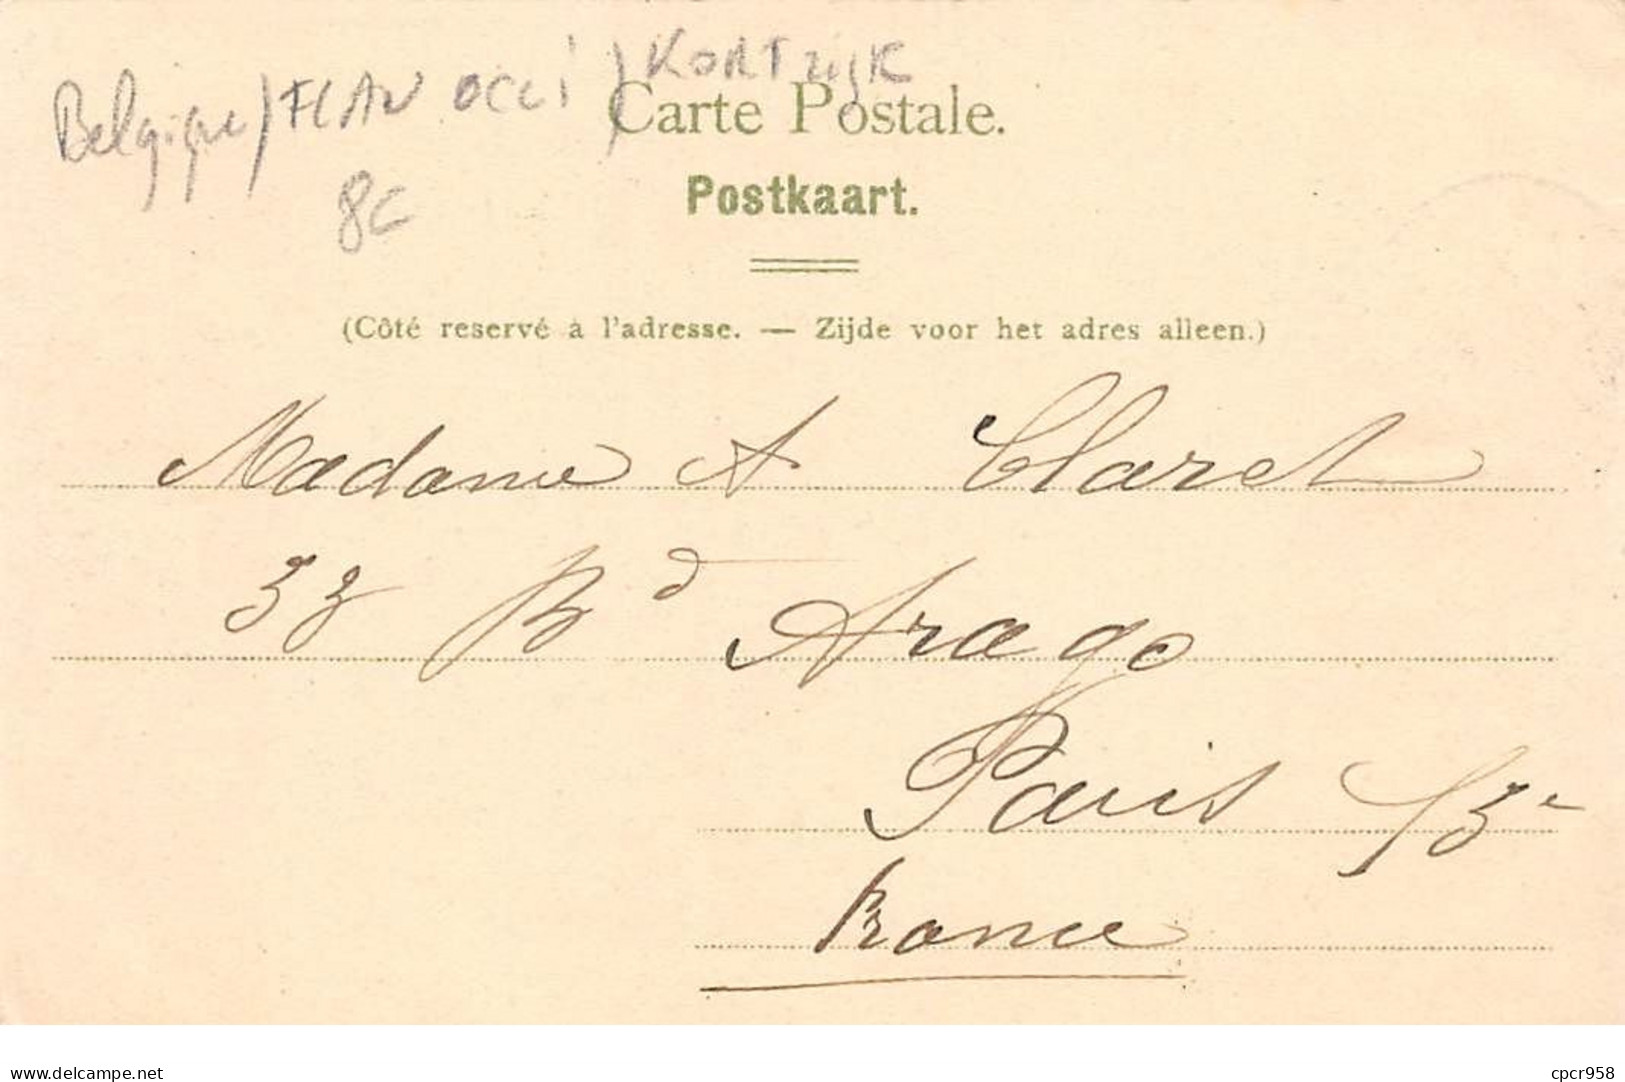 Belgique / FLAN OCCI / KORTRIJK
8C
Carte Postale.
Postkaart.
(Côté reservé à l'adresse. — Zijde voor het adres alleen.)
Madame A Claret
33 Bd Arago
Paris 13e
France
delcampe.net
cpcr958